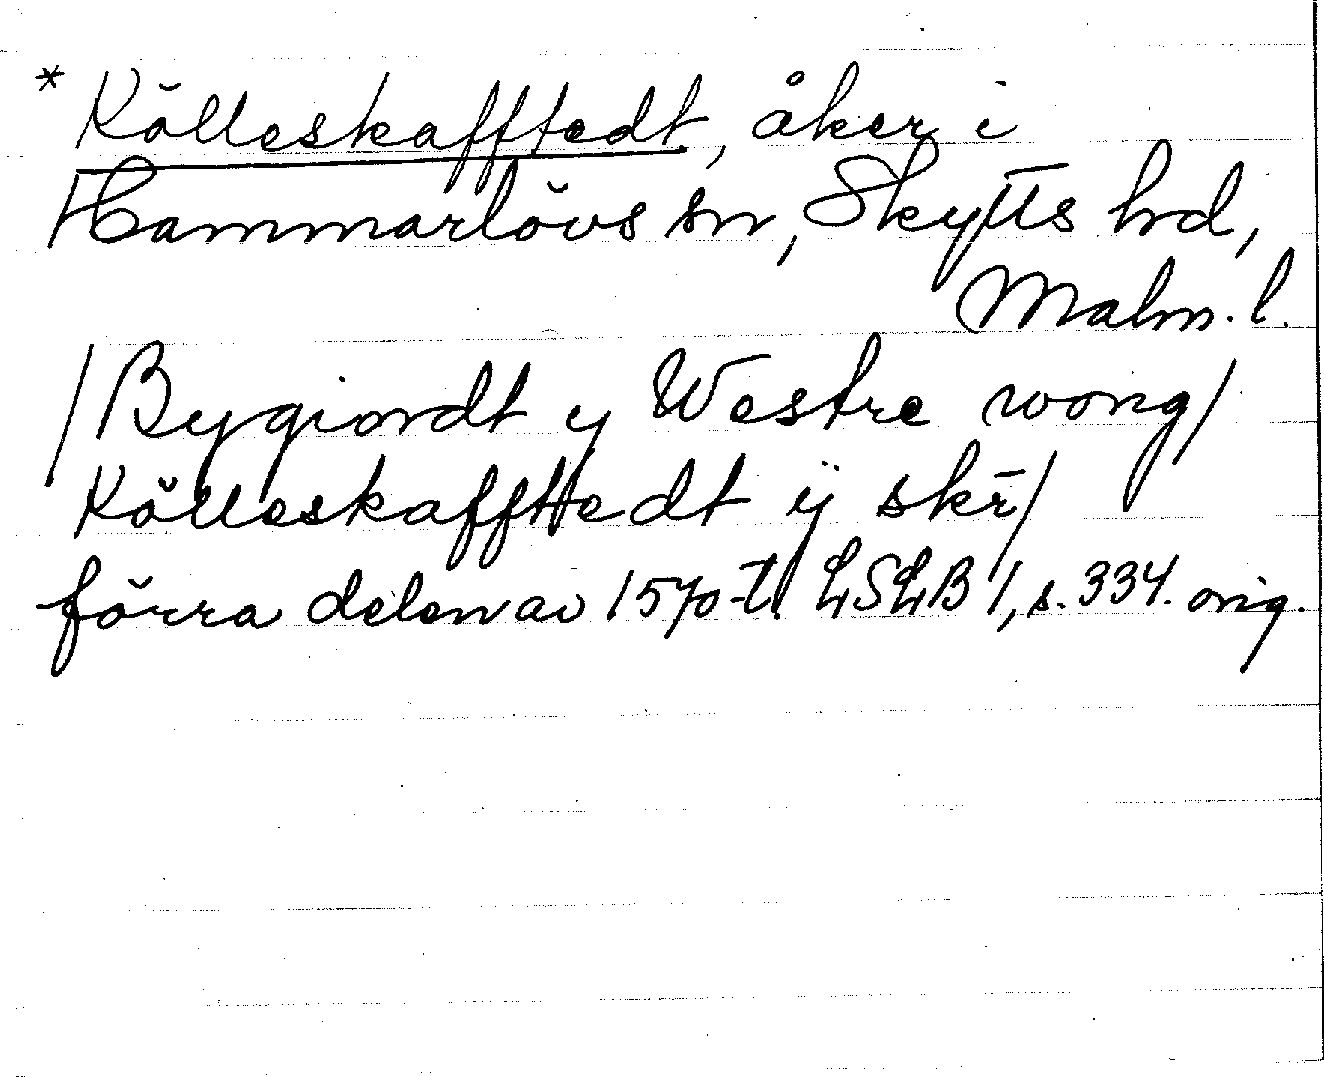 * Kölleskafftedt, åker i
Hammarlövs sn, Skytts hd,
Malm. l.
/Bygiordt y Westre wong/
Kölleskaffttedt ÿ skr̄/
förra delen av 1570-t. LSLB 1, s. 334. orig.